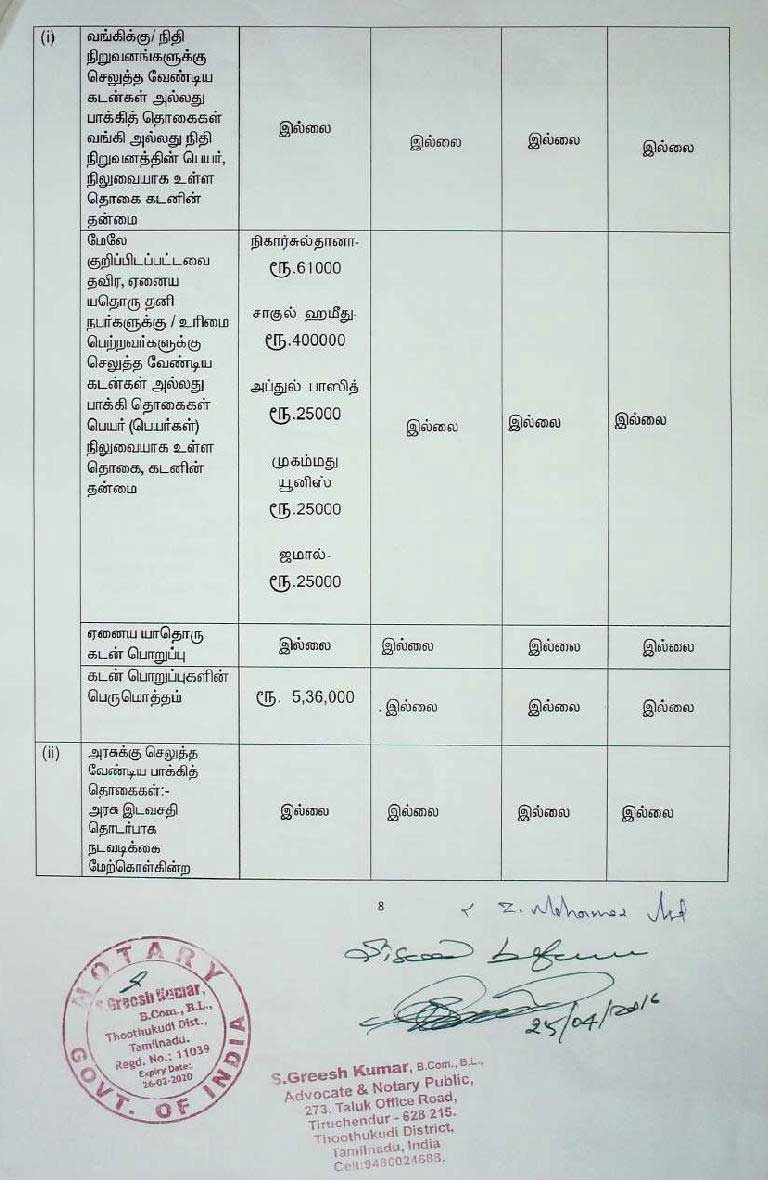 (i)
வங்கிக்கு/ நிதி
நிறுவனங்களுக்கு
செலுத்த வேண்டிய
கடன்கள் அல்லது
பாக்கித் தொகைகள்
வங்கி அல்லது நிதி
நிறுவனத்தின் பெயர்,
நிலுவையாக உள்ள
தொகை கடனின்
தன்மை
இல்லை
இல்லை
இல்லை
இல்லை
மேலே
குறிப்பிடப்பட்டவை
தவிர, ஏனைய
யதொரு தனி
நபர்களுக்கு / உரிமை
பெற்றவர்களுக்கு
செலுத்த வேண்டிய
கடன்கள் அல்லது
பாக்கி தொகைகள்
பெயர் (பெயர்கள்)
நிலுவையாக உள்ள
தொகை, கடனின்
தன்மை
நிகார்சுல்தானா-
ரூ.61000
சாகுல் ஹமீது-
ரூ.400000
அப்துல் பாஸித்
ரூ.25000
முகம்மது
யூனிஸ்
ரூ.25000
ஜமால்-
ரூ.25000
இல்லை
இல்லை
இல்லை
ஏனைய யாதொரு
கடன் பொறுப்பு
இல்லை
இல்லை
இல்லை
இல்லை
கடன் பொறுப்புகளின்
பெருமொத்தம்
ரூ. 5,36,000
இல்லை
இல்லை
இல்லை
(ii)
அரசுக்கு செலுத்த
வேண்டிய பாக்கித்
தொகைகள்:-
அரசு இடவசதி
தொடர்பாக
நடவடிக்கை
மேற்கொள்கின்ற
இல்லை
இல்லை
இல்லை
இல்லை
8
25/04/2016
NOTARY
S.Greesh Kumar,
B.Com., B.L.,
Thoothukudi Dist.,
Tamilnadu.
Regd. No.: 11039
Expiry Date:
26-02-2020
GOVT. OF INDIA
S.Greesh Kumar, B.Com., B.L.,
Advocate & Notary Public,
273, Taluk Office Road,
Tiruchendur - 628 215.
Thoothukudi District,
Tamilnadu, India
Cell:9486024688.